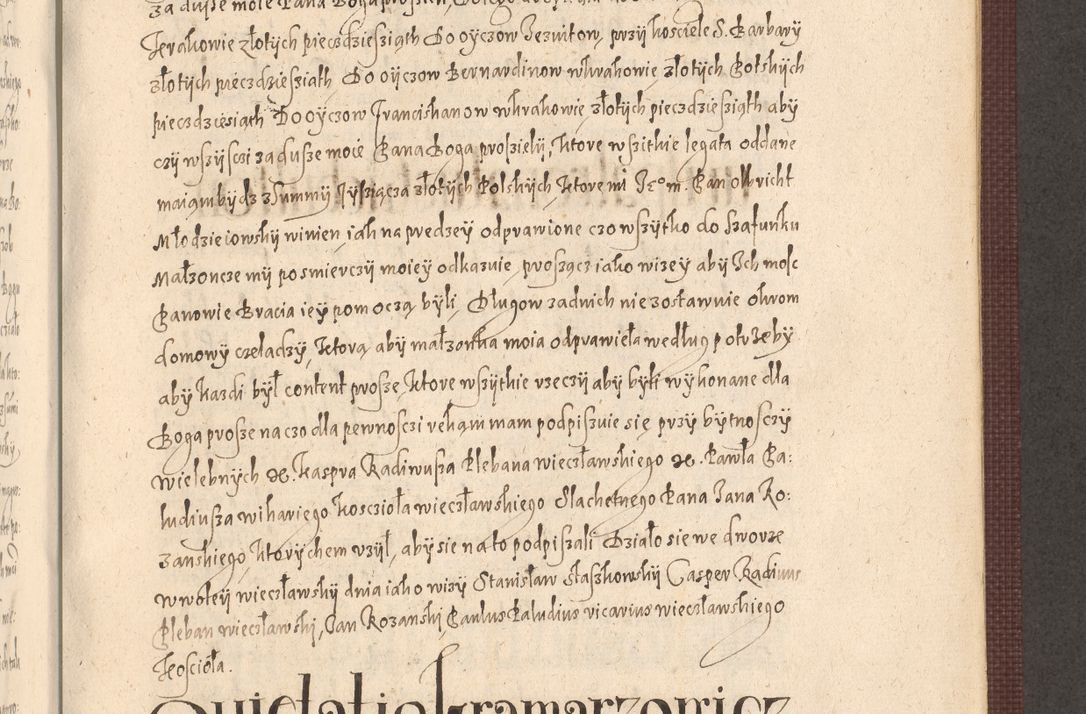 za dusse moie Pana Boga
Krakowie złotÿch pieczdziesziąth Do oÿczow Jezuitow, przÿ kosciele S. Barbarÿ
złotÿch pieczdziesziath Do oÿczow Bernardinow wkrakowie złotÿch Polskÿch
pieczdziesiąth Do oÿczow Franciskanow wkrakowie złotÿch pieczdziesziąth abÿ
czÿ wszÿsczi za dusze moie Pana Boga prosziely, ktore wszitkie legata oddane
maią mbÿdz z Summÿ Tÿsziącza złotÿch Polskÿch ktore mi Jeom. Pan olbricht
Młodzieiowskÿ winien, iak na predzeÿ odprawione czo wszÿtko do Szafunku
Małzoncze mÿ po smierczÿ moieÿ odkazuie, proszącz iako wizeÿ abÿ Ich mosc
Panowie Bracia ieÿ pomoczą bÿli, Długow zadnich nie zostawuie okrom
domowÿ czeladzÿ, ktorą abÿ małzonka moia odprawieła według potrzebÿ
abÿ kazdi bÿł content prosze, ktore wszÿtkie rzeczÿ abÿ bÿłi wÿkonane dla
Boga prosze na czo dla pewnosczi ręką mam podpiszuie się przÿ bÿtnosczÿ
wielebnÿch &. Kaspra Radiwusza Plebana wieczławskiego &. Pawła Pa:
ludiusza wikariego kosczioła wieczławskiego Slachetnego Pana Jana Ko:
zanskiego, ktorÿchem uzÿł, abÿ sie na to podpiszali Działo sie we dworze
wwoleÿ wieczławskÿ dnia iako wizÿ Stanisław Staszkowskÿ Casper Radiuus
Pleban wieczławski, Jan Kozanski, Paulus Paludius vicarius wieczławskiego
Kościoła.
Quietatio kramarzowicz